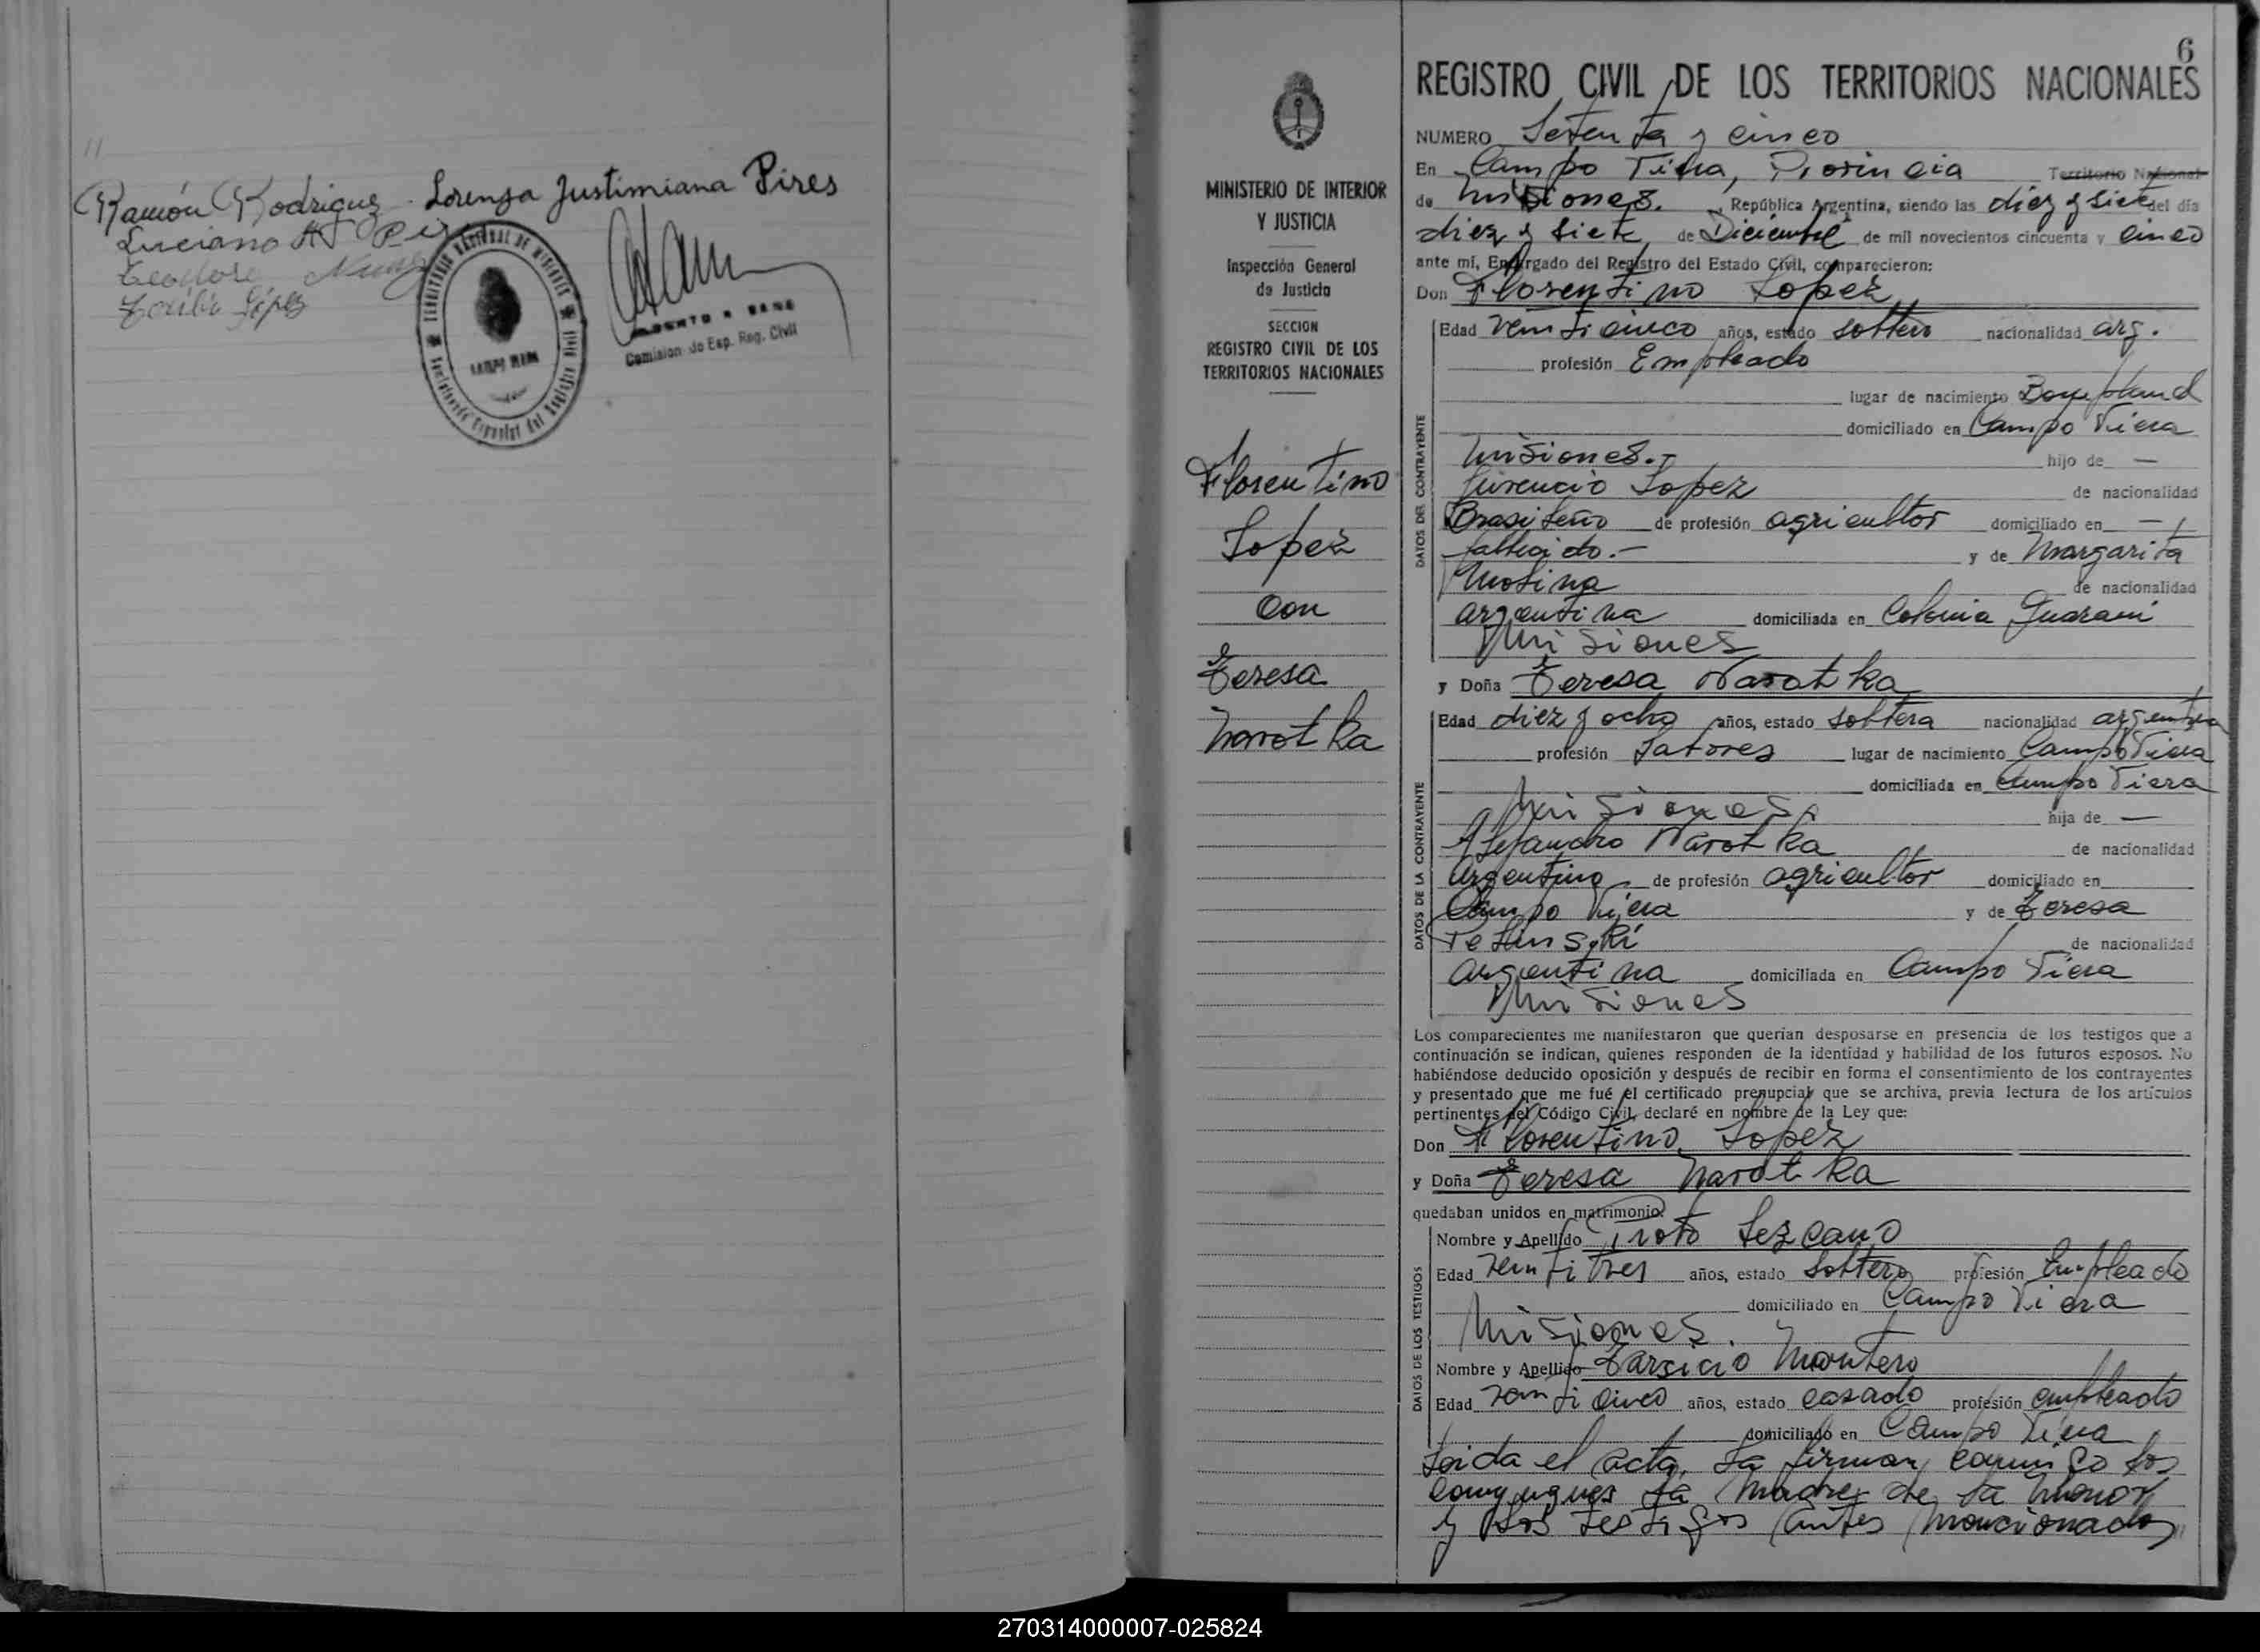 Ramón Rodriguez Lorenza Justimiana Pires
Luciano
Teodoro
López
TERRITORIO NACIONAL DE MISIONES
Comision de Esp. Reg. Civil
6
MINISTERIO DE INTERIOR
Y JUSTICIA
Inspección General
de Justicia
SECCION
REGISTRO CIVIL DE LOS
TERRITORIOS NACIONALES
Florentino
Lopez
Con
Teresa
Narotka
REGISTRO CIVIL DE LOS TERRITORIOS NACIONALES
NUMERO Setenta y cinco
En Campo Viera, Provincia Territorio Nacional
de Misiones. República Argentina, siendo las diez y siete del día
diez y siete de Diciembre de mil novecientos cincuenta y cinco
ante mí, Encargado del Registro del Estado Civil, comparecieron:
Don Florentino Lopez
DATOS DEL CONTRAYENTE
Edad Venticinco años, estado soltero nacionalidad arg.
profesión Empleado
lugar de nacimiento Bompland
domiciliado en Campo Viera
Misiones.- hijo de —
Juvencio Lopez de nacionalidad
Brasileño de profesión agricultor domiciliado en —
fallecido.- y de Margarita
Molina de nacionalidad
argentina domiciliada en Colonia Guarani
Misiones
y Doña Teresa Narotka
DATOS DE LA CONTRAYENTE
Edad diez y ocho años, estado soltera nacionalidad argentina
profesión Labores lugar de nacimiento Campo Viera
domiciliada en Campo Viera
Misiones. hija de —
Alejandro Narotka de nacionalidad
Argentino de profesión agricultor domiciliado en
Campo Viera y de Teresa
de nacionalidad
argentina domiciliada en Campo Viera
Misiones
Los comparecientes me manifestaron que querían desposarse en presencia de los testigos que a
continuación se indican, quienes responden de la identidad y habilidad de los futuros esposos. No
habiéndose deducido oposición y después de recibir en forma el consentimiento de los contrayentes
y presentado que me fué el certificado prenupcial que se archiva, previa lectura de los artículos
pertinentes del Código Civil, declaré en nombre de la Ley que:
Don Florentino Lopez
y Doña Teresa Narotka
quedaban unidos en matrimonio.
DATOS DE LOS TESTIGOS
Nombre y Apellido Proto Lezcano
Edad Ventitres años, estado Soltero profesión Empleado
domiciliado en Campo Viera
Misiones.
Nombre y Apellido Tarsicio Montero
Edad Venticinco años, estado casado profesión empleado
domiciliado en Campo Viera
Leida el acta, la firman conmigo los
conyugues la Madre de la menor
y los testigos antes mencionados
270314000007-025824